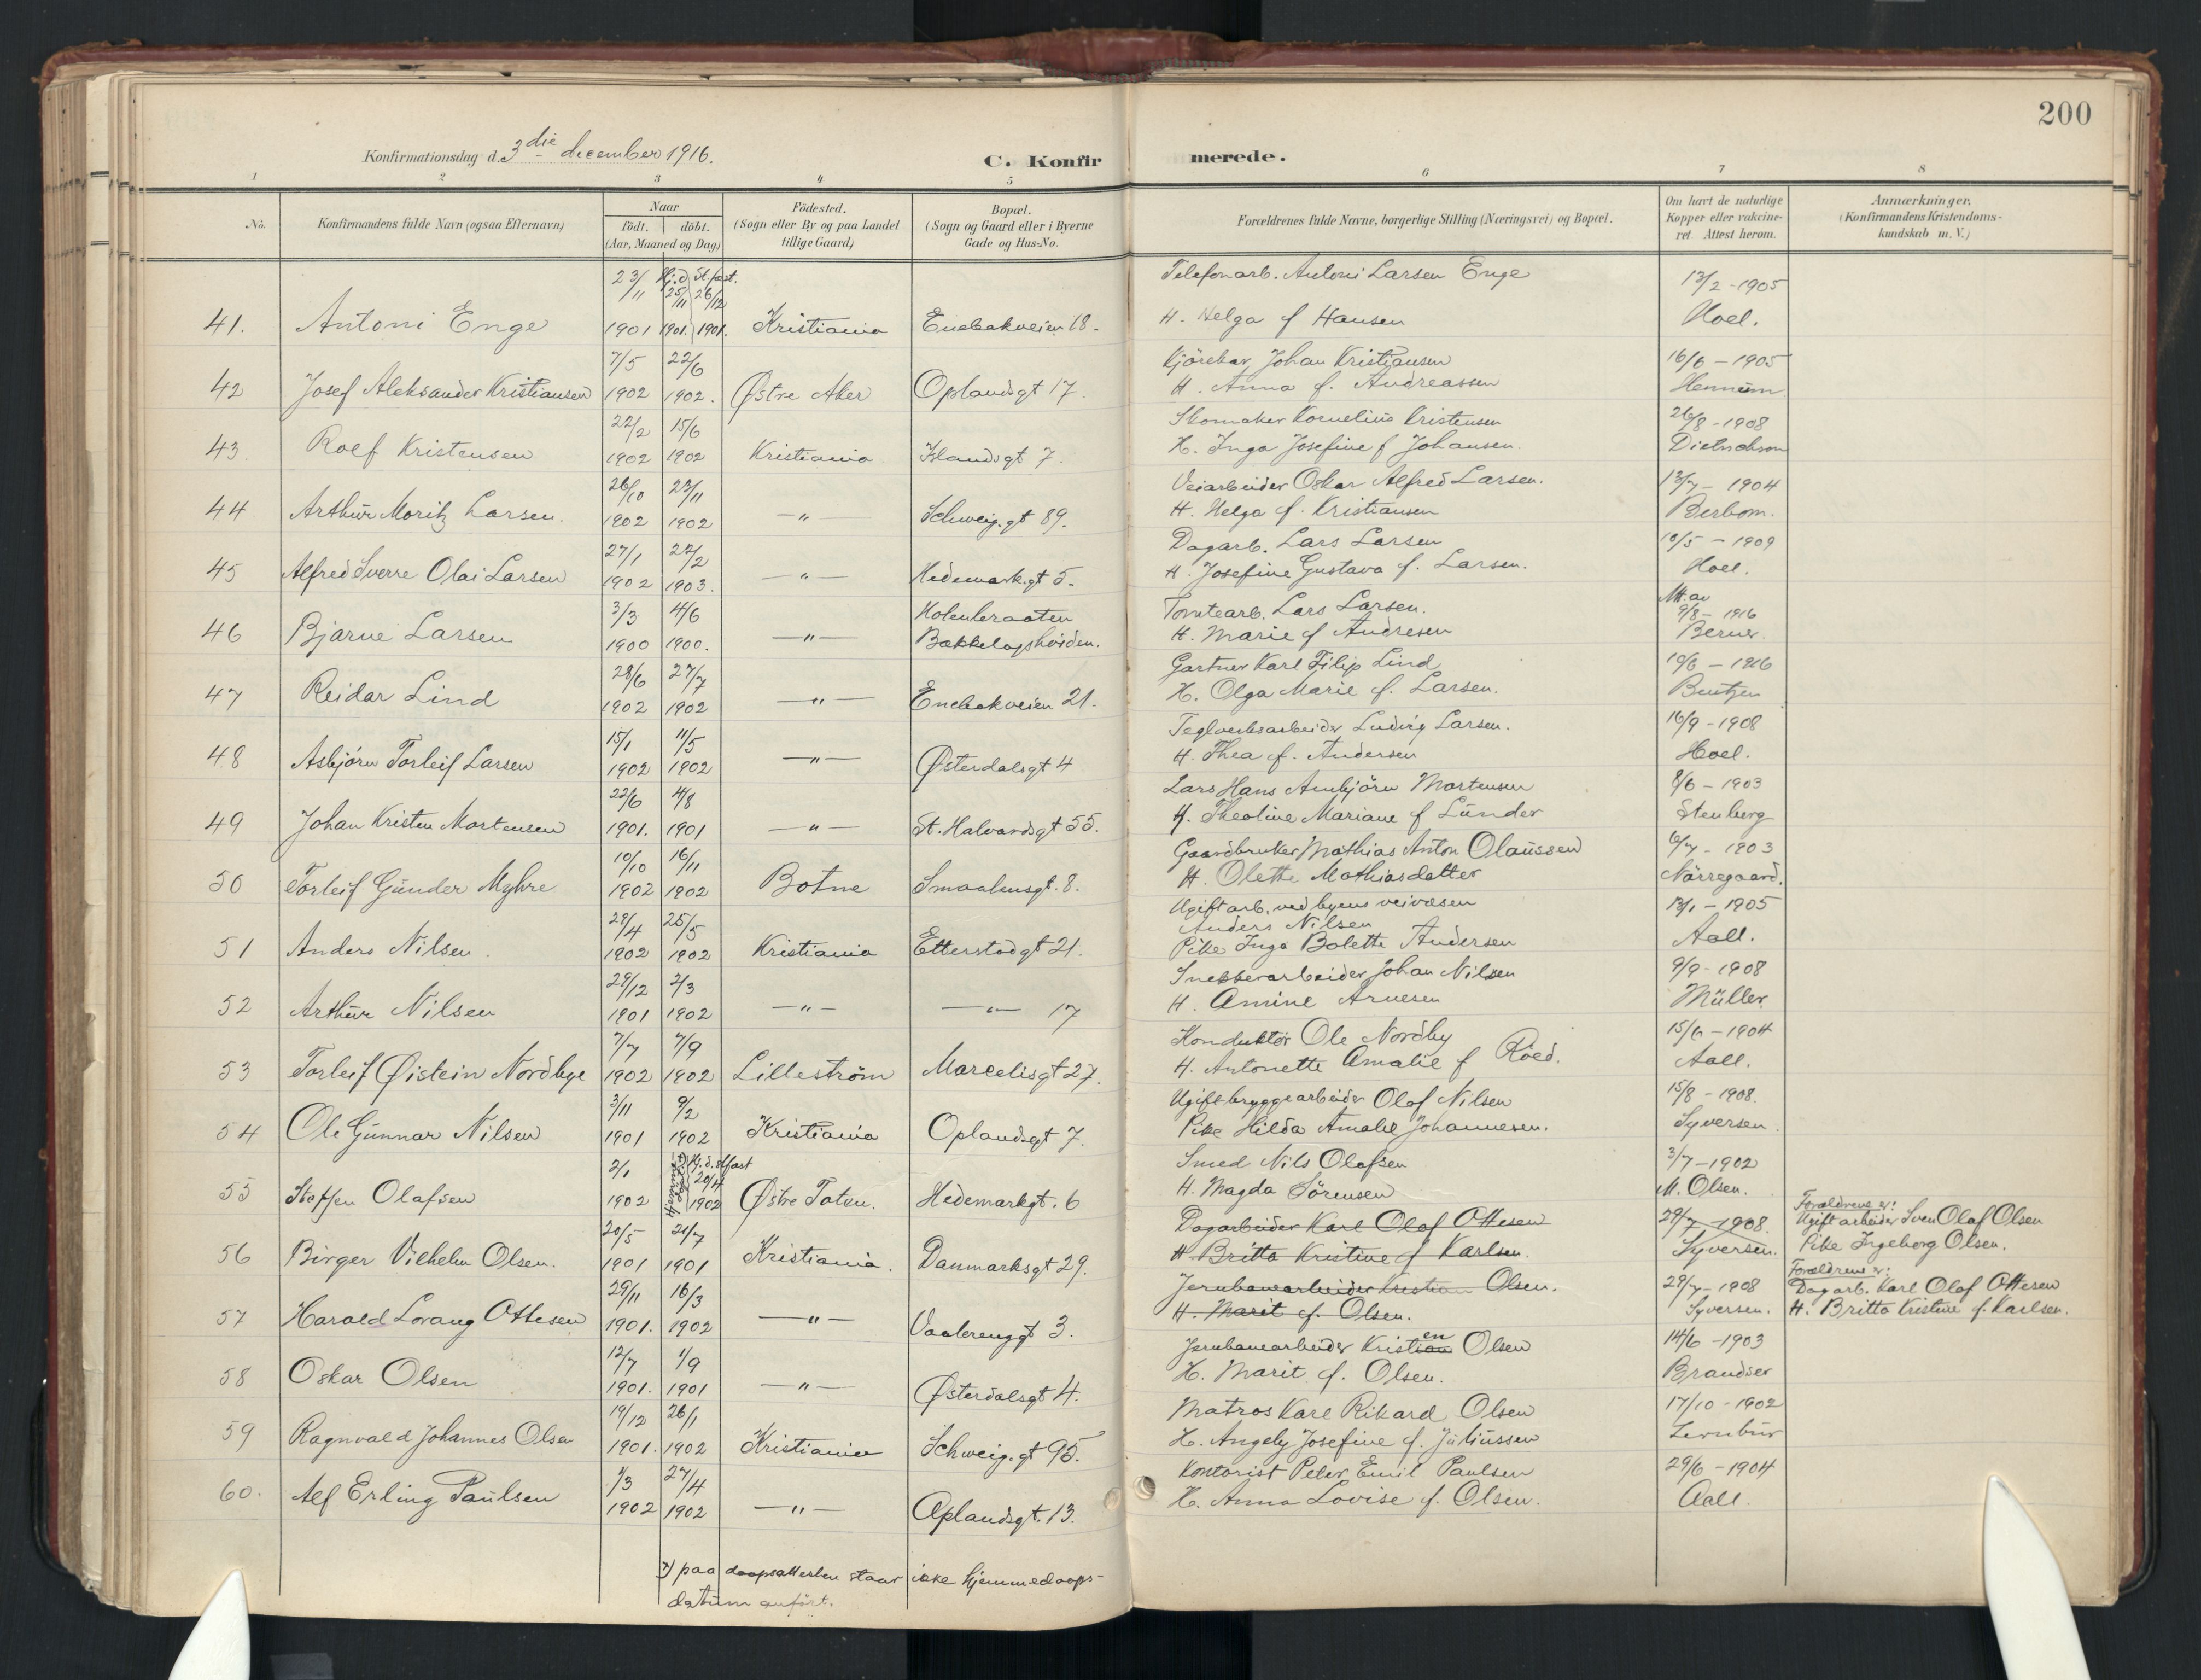 200
Konfirmationsdag d. 3die december 1916.
C. Konfirmerede.
1 2 3 4 5 6 7 8
No. | Konfirmandens fulde Navn (ogsaa Efternavn) | Naar født. | døbt. (Aar, Maaned og Dag) | Fødested. (Sogn eller By og paa Landet tillige Gaard) | Bopæl. (Sogn og Gaard eller i Byerne Gade og Hus-No. | Forældrenes fulde Navne, borgerlige Stilling (Næringsvei) og Bopæl. | Om havt de naturlige Kopper eller vakcineret. Attest herom. | Anmærkninger. (Konfirmandens Kristendomskundskab m. V.)
41. Antoni Enge 23/11 1901 Hj.d. 25/11 1901. St.fæst. 26/12 1901. Kristiania Enebakveien 18. Telefonarb. Antoni Larsen Enge
H. Helga f Hansen 13/2 - 1905 Hoel.
42 Josef Aleksander Kristiansen 7/5 1902 22/6 1902. Østre Aker Oplandsgt 17. Kjørekar Johan Kristiansen
H. Anna f. Andreassen 16/6 - 1905 Hennum
43. Rolf Kristensen 22/2 1902 15/6 1902 Kristiania Islandsgt 7. Skomaker Kornelius Kristensen
H. Inga Josefine f Johansen. 26/8 - 1908 Dietrichson
44 Arthur Moritz Larsen. 26/10 1902 23/11 1902 —"— Schweig.gt 89. Veiarbeider Oskar Alfred Larsen.
H. Helga f. Kristiansen 13/7 - 1904 Berbom.
45 Alfred Sverre Olai Larsen 27/1 1902 22/2 1903. —"— Hedemark.gt 5. Dagarb. Lars Larsen
H. Josefine Gustava f. Larsen. 10/5 - 1909 Hoel.
46 Bjarne Larsen 3/3 1900 4/6 1900. —"— Holenbraaten
Bækkelagshøiden. Tomtearb. Lars Larsen.
H. Marie f Andresen Att. av 9/8 - 1916 Berner.
47 Reidar Lind 28/6 1902 27/7 1902 —"— Enebakveien 21. Gartner Karl Filip Lind
H. Olga Marie f. Larsen. 10/6 - 1916 Bentzen
48 Asbjørn Torleif Larsen 15/1 1902 11/5 1902 —"— Østerdalsgt 4 Teglverksarbeider Ludvig Larsen.
H. Thea f. Andersen 16/9 - 1908 Hoel.
49 Johan Kristen Mortensen 22/6 1901. 4/8 1901 —"— St. Halvardsgt 55. Lars Hans Arnbjørn Mortensen
H. Theoline Mariane f Lunder 8/6 - 1903 Stenberg
50 Torleif Gunder Myhre 10/10 1902 16/11 1902 Botne Smaalensgt. 8. Gaardbruker Mathias Anton Olaussen
H. Olette Mathiasdatter 6/7 - 1903 Nørregaard.
51 Anders Nilsen. 29/4 1902 25/5 1902 Kristiania Etterstadgt 21. Ugift arb. ved byens veivæsen
Anders Nilsen
Pike Inga Bolette Andersen 13/1 - 1905 Aall.
52 Arthur Nilsen 29/12 1901 2/3 1902 —"— —"— 17 Snekkerarbeider Johan Nilsen
H. Amine Arnesen 9/9 - 1908 Müller.
53 Torleif Øistein Nordbye 7/7 1902 7/9 1902 Lillestrøm Marcelisgt 27. Konduktør Ole Nordby
H. Antonette Amalie f Roed. 15/6 - 1904 Aall.
54 Ole Gunnar Nilsen 3/11 1901 9/2 1902 Kristiania Oplandsgt 7. Ugift bryggearbeider Olaf Nilsen
Pike Hilda Amalie Johannesen. 15/8 - 1908. Syversen.
55 Steffen Olafsen 2/1 1902 Hj.d. stfæst 20/4 1902 Østre Toten. Hedemarkgt. 6 Smed Nils Olafsen
H. Magda Sørensen 3/7 - 1902 M. Olsen.
56 Birger Vilhelm Olsen. 20/5 1901 21/7 1901 Kristiania. Danmarksgt 29. Dagarbeider Karl Olaf Ottesen
H. Britta Kristine f Karlsen. 29/7 - 1908. Syversen. Forældrene er:
Ugift arbeider Sven Olaf Olsen
Pike Ingeborg Olsen.
57 Harald Lorang Ottesen 29/11 1901. 16/3 1902 —"— Vaalerenggt 3. Jernbanearbeider Kristian Olsen.
H. Marit f. Olsen. 29/7 - 1908 Syversen. Forældrene er:
Dagarb. Karl Olaf Ottesen
H. Britta Kristine f. Karlsen.
58 Oskar Olsen 12/7 1901. 1/9 1901 —"— Østerdalsgt 4. Jernbanearbeider Kristian en Olsen
H. Marit f. Olsen. 14/6 - 1903 Brandser
59 Ragnvald Johannes Olsen 19/12 1901. 26/1 1902 Kristiania Schweig.gt 95. Matros Karl Rikard Olsen
H. Angely Josefine f. Juliussen 17/10 - 1902
60. Alf Erling Paulsen 1/3 1902 27/4 1902 —"— Oplandsgt. 13. Kontorist Peter Emil Paulsen
H. Anna Lovise f. Olsen. 29/6 - 1904 Aall.
x) paa daapsattesten staar ikke hjemmedaaps-
datum anført.